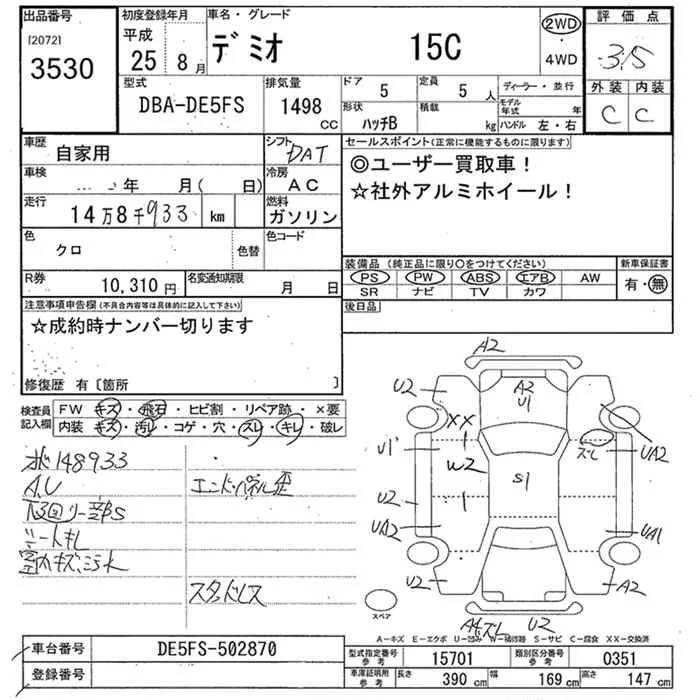 出品番号 初度登録年月 車名・グレード 評価点
[2072] 平成 デミオ 15C 2WD
3530 25年 8月 4WD 3.5
型式 排気量 ドア 定員 ディーラー・並行 外装 内装
DBA-DE5FS 1498 CC 5 5人 モデル年式 年 C C
形状 積載
ハッチB kg ハンドル 左・右
車歴 シフト セールスポイント(正常に機能するものに限ります)
自家用 DAT ◎ユーザー買取車!
車検 冷房 ☆社外アルミホイール!
年 月( 日) AC
走行 燃料
14万8千933 km ガソリン
色 色コード
クロ 色替
装備品(純正品に限り○をつけてください) 新車保証書
R券 名変通知期限 PS PW ABS エアB AW 有・無
10,310円 月 日 SR ナビ TV カワ
注意事項申告欄(不具合内容等は具体的に記入して下さい) 後日品
☆成約時ナンバー切ります
修復歴 有〔箇所 〕
検査員記入欄 FW キズ・飛石・ヒビ割・リペア跡・×要
内装・キズ・汚レ・コゲ・穴・スレ・キレ・破レ
148933
A.U エンドパネル歪
下回り一部S
シートキレ
室内キズ、汚れ
スタッドレス
A2
U2 A2 U2
U1
XX スレ
U1 W2 UA2
S1
U2
UA2 UA1
U2 A2
スペア
U2
A-キズ E-エクボ U-凹み W-補修跡 S-サビ C-腐食 XX-交換済
車台番号 DE5FS-502870 型式指定番号 参考 15701 類別区分番号 参考 0351
登録番号 車庫証明用 参考 長さ 390 cm 幅 169 cm 高さ 147 cm